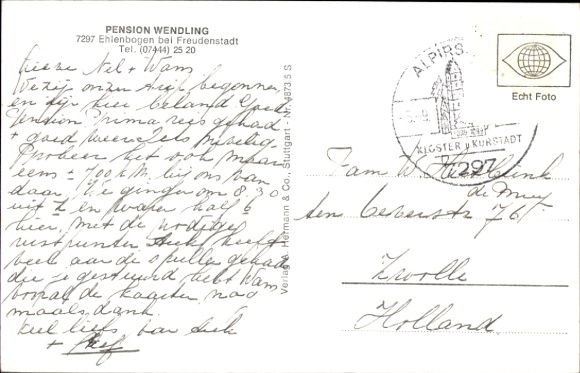 PENSION WENDLING
7297 Ehlenbogen bei Freudenstadt
Tel. (07444) 25 20
Lieve Nel + Wam
We zijn onze reis begonnen
en zijn hier beland Goed
Pension Prima reis gehad
+ goed weer Iets
Probeer het ook maar
eens ± 700 k.M. bij ons van
daar. We gingen om 8.30
uit Z en waren half 6
hier, met de nodige
rustpunten heeft
veel aan de spullen gehad
die je gestuurd hebt Wam
vooral de kaarten nog
maals dank.
Veel liefs van
+
Verlag A. Hermann & Co., Stuttgart - Nr. 4873 5 S
ALPIRS
KLOSTER u KURSTADT
7297
Echt Foto
Fam W
de Mey
ten Oeverstr 76
Zwolle
Holland